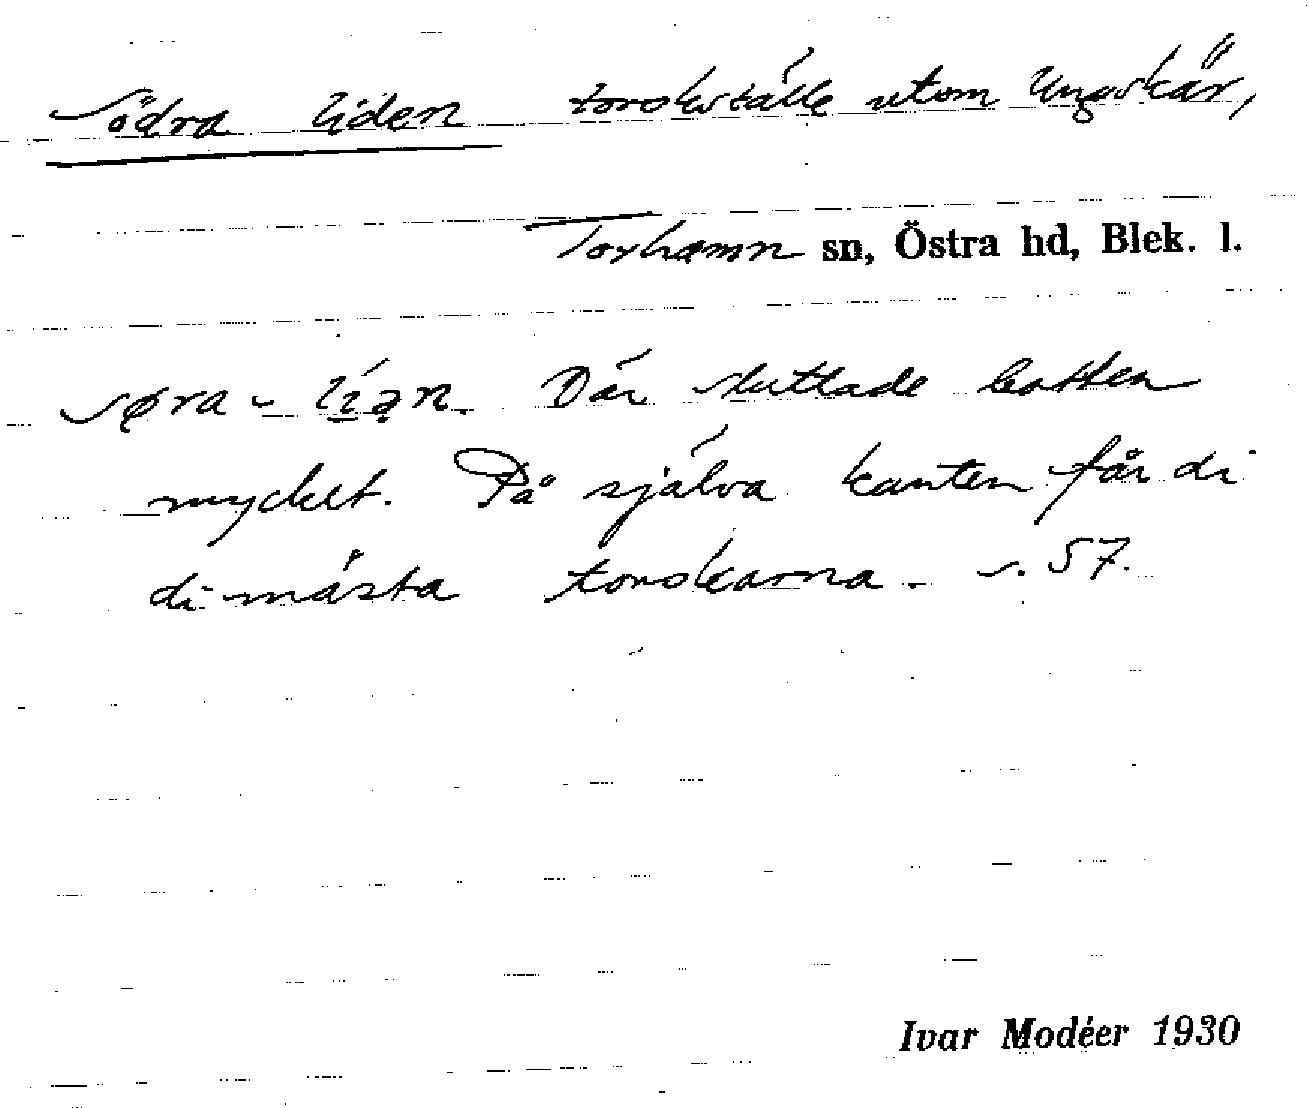 Södra liden torskställe utom Ungskär,
Torhamn sn, Östra hd, Blek. l.
søra - liən. Där sluttade botten
mycket. På själva kanten får di
di mästa torskarna. s. 57.
Ivar Modéer 1930